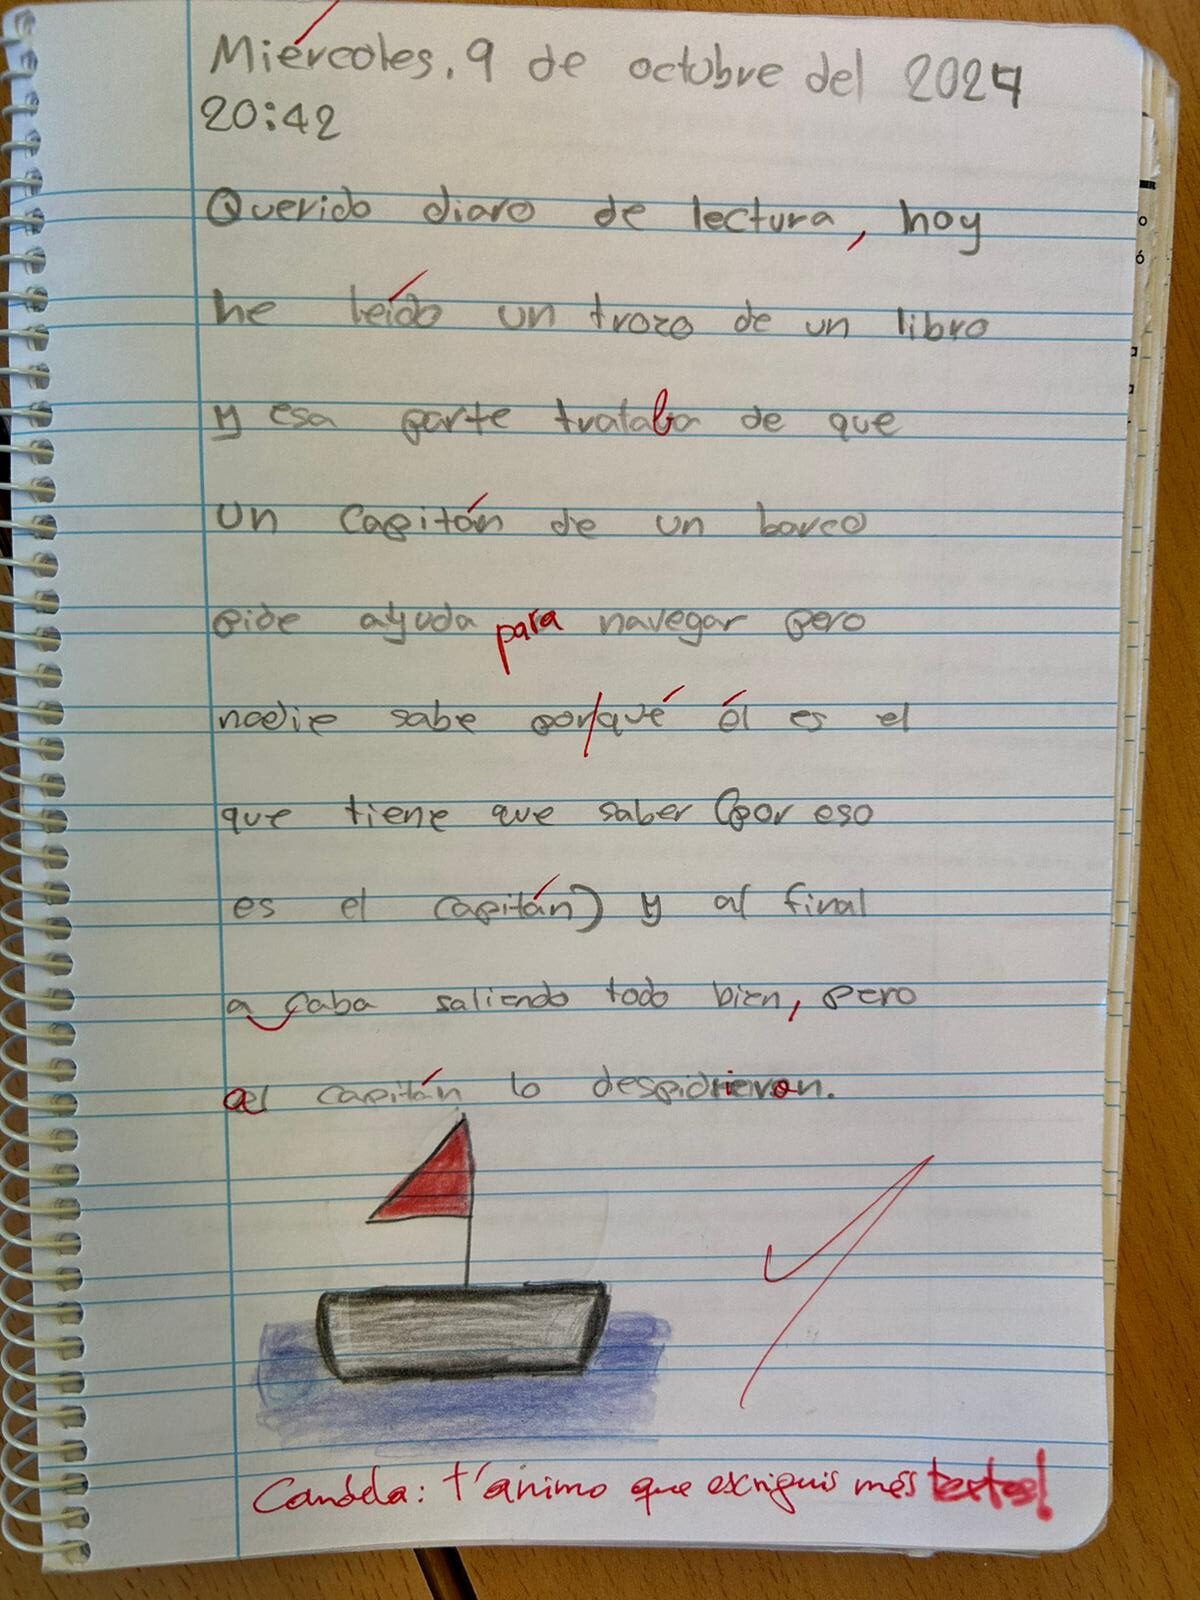 Miércoles, 9 de octubre del 2024
20:42
Querido diaro de lectura, hoy
he leído un trozo de un libro
y esa parte trataba de que
un capitán de un barco
pide ayuda para navegar pero
nadie sabe por/qué él es el
que tiene que saber (por eso
es el capitán) y al final
a caba saliendo todo bien, pero
al capitán lo despidieron.
Candela: t'animo que escriguis més textos!